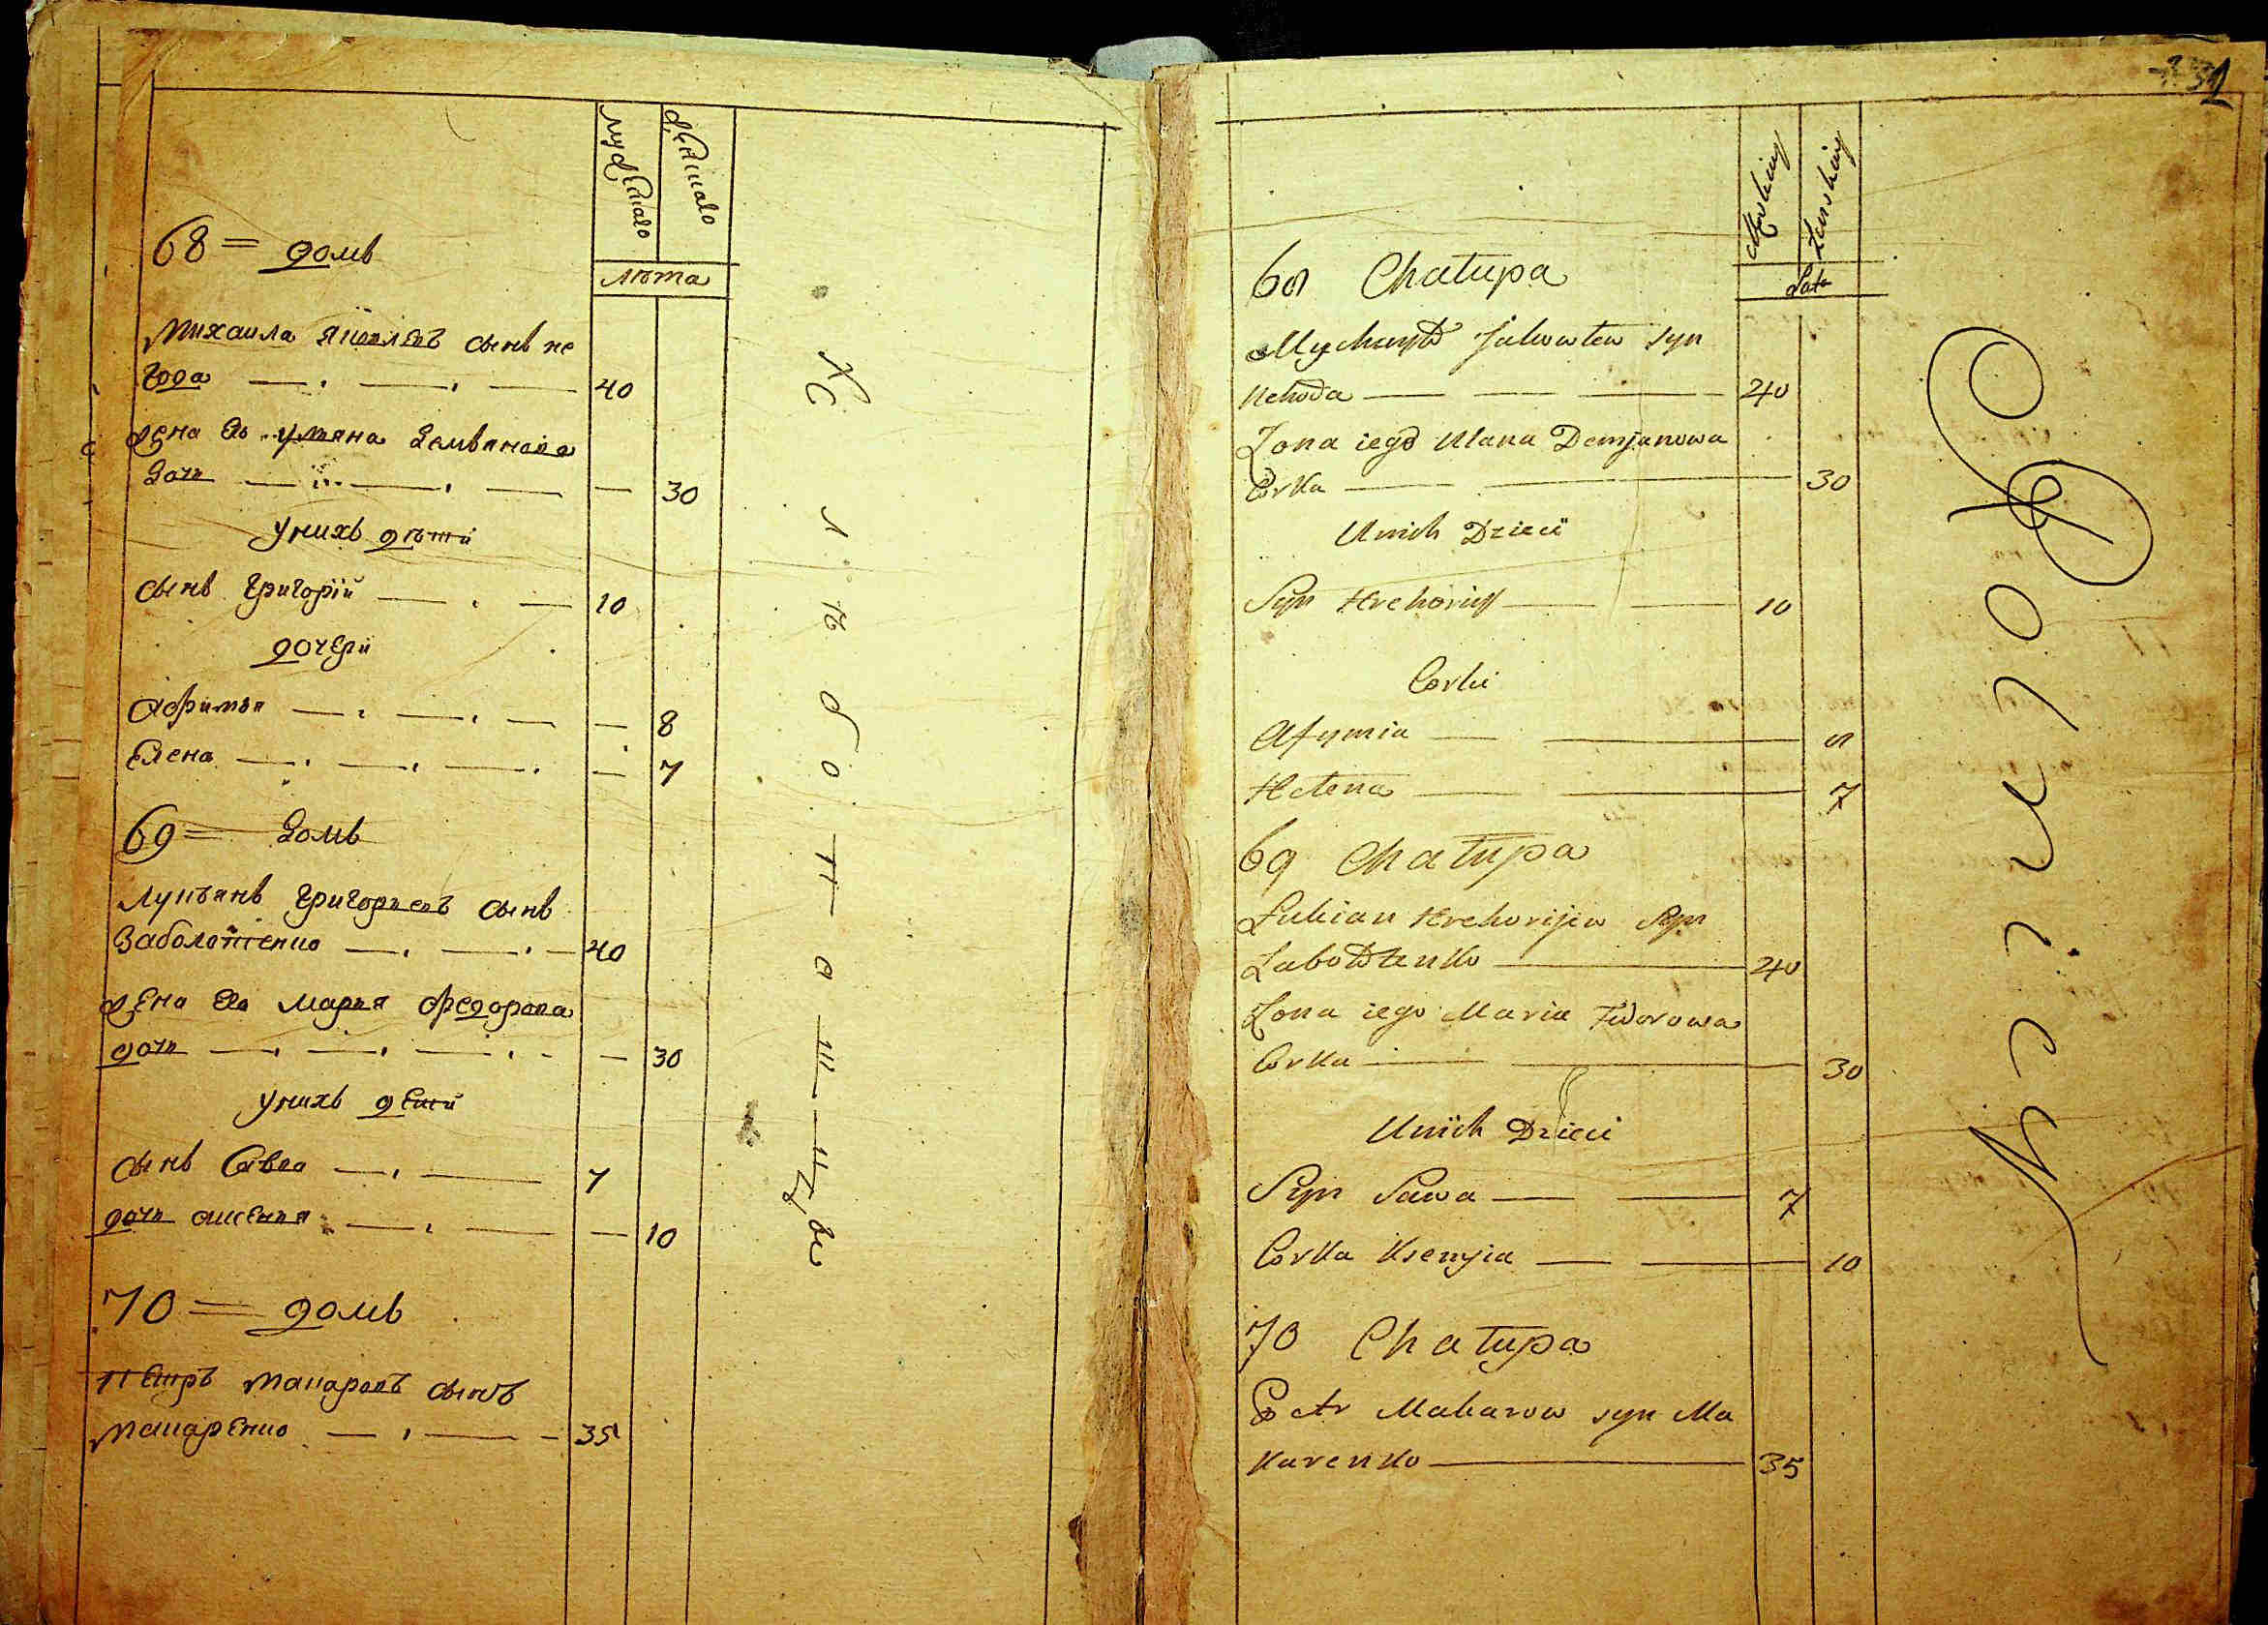 мужескаго
женскаго
лѣта
68 = домъ
Михаила Яковлевъ сынъ не
года — — — 40
жена его уляна Демьянова
дочь — — — — 30
у нихъ дѣти
сынъ григорiй — — 10
дочери
Афимья — — — — 8
Елена — — — — 7
69 = домъ
Лукъянъ григорьевъ сынъ
Заболотенко — — — 40
жена его марья федорова
дочь — — — — — 30
у нихъ дети
сынъ Савва — — 7
дочь аксенья — — — 10
70 = домъ
петръ макаровъ сынъ
макаренко — — — 35
Къ
Mezkiey
Zenskiey
Lata
68 Chałupa
Mychayło Jakowlew syn
Nehoda — — — 40
Zona iego Ulana Demjanowa
Corka — — 30
U nich Dzieci
Syn Hrehoriy — — 10
Corki
Afymia — — 8
Helena — — 7
69 Chałupa
Łukian Hrehorijew Syn
Zabołotenko — 40
Zona iego Maria Fedorowa
Corka — — 30
U nich Dzieci
Syn Sawa — — 7
Corka Ksenyia — — 10
70 Chałupa
Petr Makarow syn Ma
karenko — 35